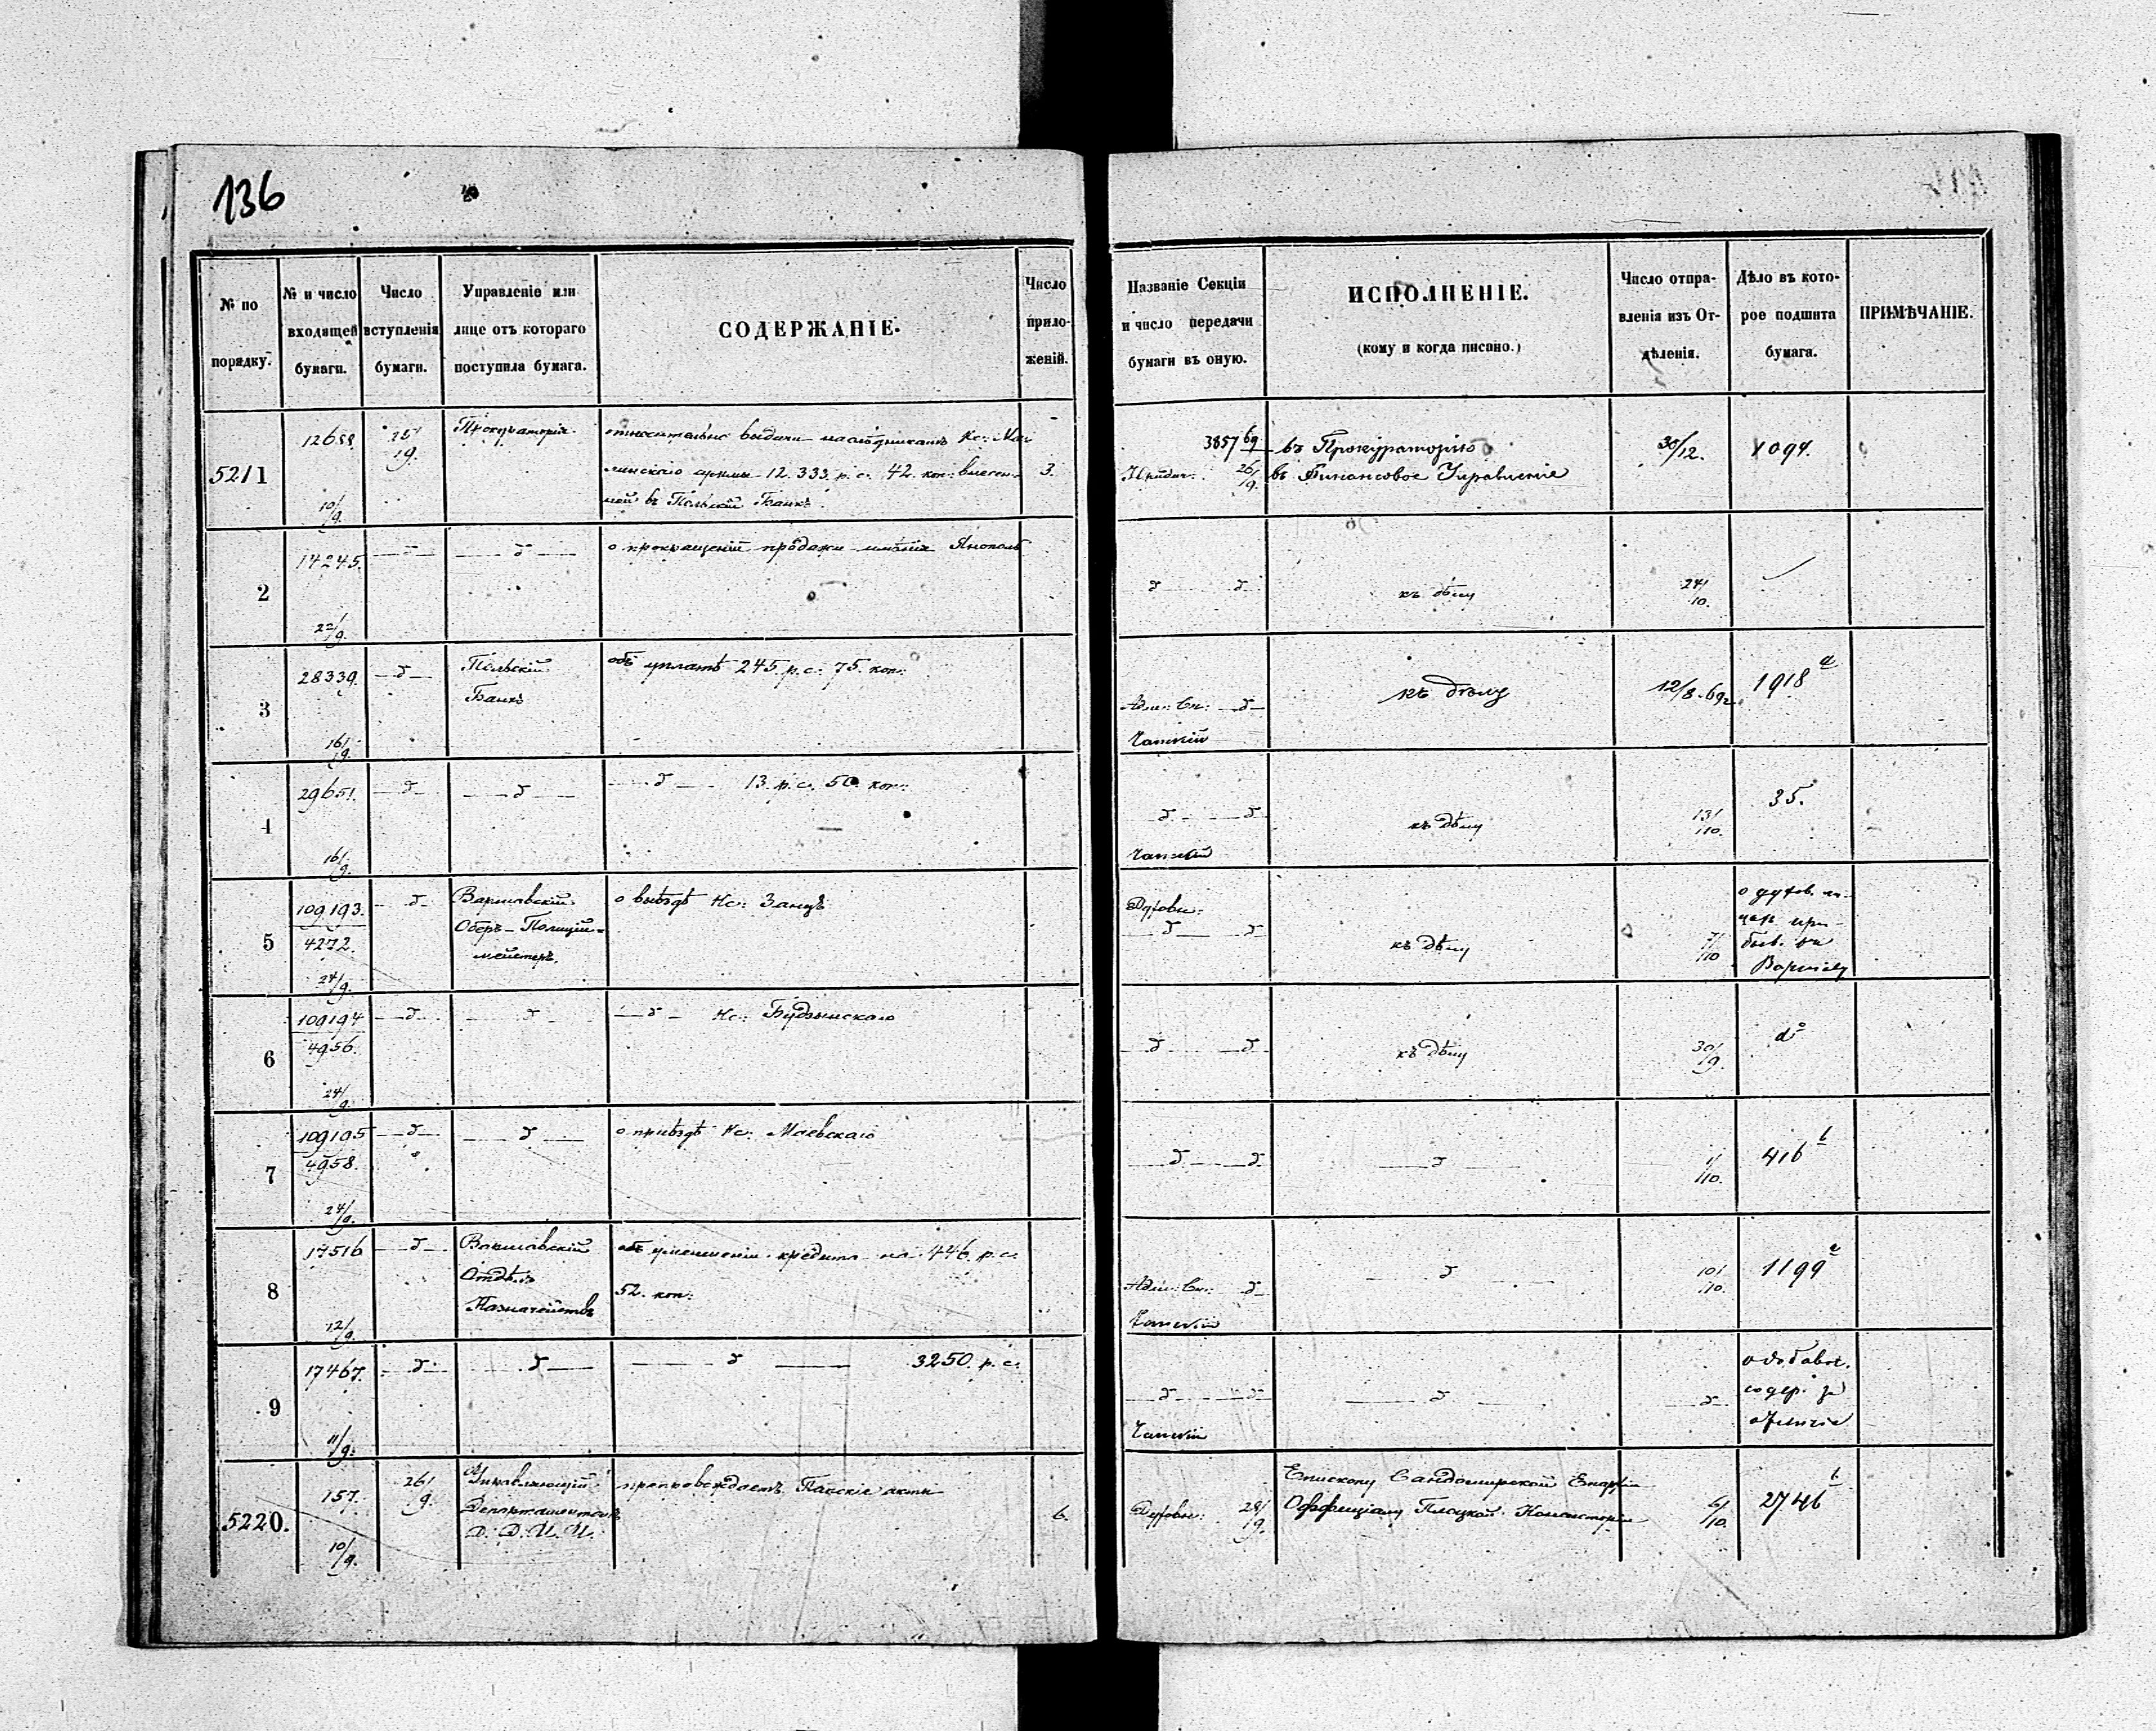 136
№ по
порядку.
№ и число
входящей
бумаги.
Число
вступленія
бумаги.
Управленіе или
лице отъ котораго
поступила бумага.
СОДЕРЖАНІЕ.
Число
прило-
женій.
Названіе Секціи
и число передачи
бумаги въ оную.
ИСПОЛНЕНІЕ.
(кому и когда писано.)
Число отпра-
вленія изъ От-
дѣленія.
Дѣло въ кото-
рое подшита
бумага.
ПРИМѢЧАНІЕ.
5211
12688
10/9.
25/9.
Прокураторія
относительно выдачи наслѣдникамъ Кс: Ма
линскаго суммы 12.333 р. с. 42. коп: внесен-
ной въ Польскій Банкъ.
3.
3857/69
Юридич: 26/9.
въ Прокураторію
въ Финансовое Управленіе
30/12.
1094.
2
14245.
22/9.
— д —
о прекращеніи продажи имѣнія Янополь
д д
къ дѣлу
24/10.
3
28339.
16/9.
— д —
Польскій
Банкъ
объ уплатѣ 245. р. с: 75. коп:
Адм: Сек: — д —
къ дѣлу
12/8-69 г.
1918 a
4
29651.
16/9.
— д —
— д —
— д — 13. р. с. 50. коп:
д д
къ дѣлу
13/10.
35.
5
109193.
4272.
24/9.
— д —
Варшавскій
Оберъ-Полицій-
мейстеръ.
о выѣздѣ Кс: Занцъ
Духовн:
д д
къ дѣлу
7/10
о духов. ли-
цахъ при-
быв. въ
Варшаву
6
109194
4956.
24/9.
— д —
— д —
— д — Кс: Будзынскаго
д д
къ дѣлу
30/9.
dº
7
109195
4958.
24/9.
— д —
— д —
о пріѣздѣ Кс: Маевскаго
д д
— д —
1/10.
416 b
8
17516
12/9.
— д —
Варшавскій
Отдѣлъ
Казначейства
объ уменшеніи кредита на 446. р. с.
52. коп:
Адм: Сек: д
— д —
10/10.
1199
9
17467.
11/9.
— д —
— д —
— д — 3250. р. с.
д д
— д —
д
о добавоч.
содер. за
5220.
157.
10/9.
26/9.
Управляющій
Департаментомъ
Д. Д. И. И.
препровождаетъ Папскіе акты
6.
Духовн: 28/9.
Епископу Сандомирской Епархіи
Оффиціалу Плоцкой Консисторіи
6/10.
2746 b